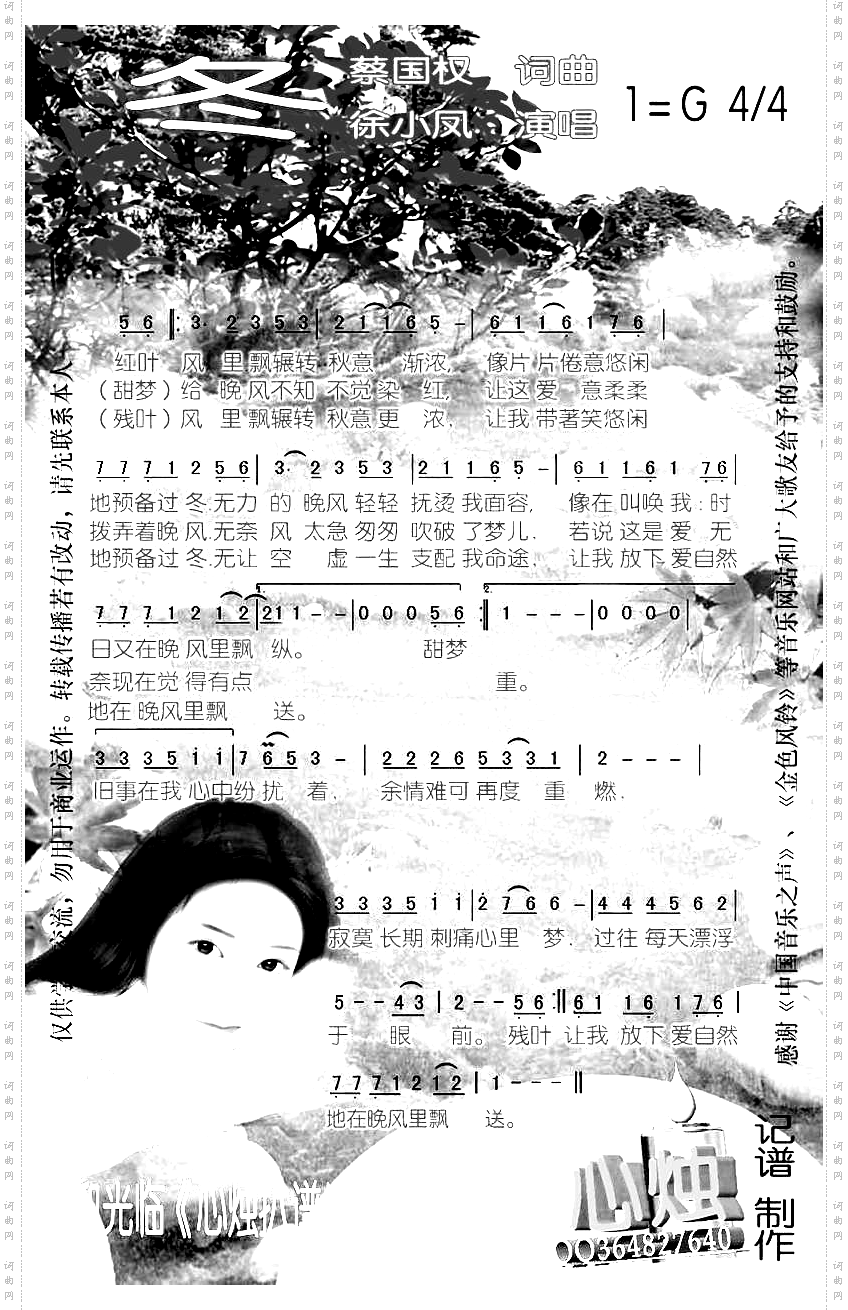 冬
蔡国权 词曲
徐小凤 演唱
1=G 4/4
5 6 3· 2 3 5 3 2 1 1 6 5 - 6 1 1 6 1 7 6
红叶 风 里飘辗转 秋意 渐浓, 像片 片倦意悠闲
(甜梦)给 晚风不知 不觉染 红, 让这爱 意柔柔
(残叶)风 里飘辗转 秋意更 浓, 让我带著笑悠闲
7 7 7 1 2 5 6 3· 2 3 5 3 2 1 1 6 5 - 6 1 1 6 1 7 6
地预备过 冬.无力 的 晚风 轻轻 抚烫 我面容, 像在 叫唤 我:时
拨弄着晚 风.无奈 风 太急 匆匆 吹破 了梦儿. 若说 这是 爱 无
地预备过 冬.无让 空 虚 一生 支配 我命途, 让我 放下 爱自然
1. 2.
7 7 7 1 2 1 2 2 1 1 - - 0 0 0 5 6 1 - - - 0 0 0 0
日又在晚 风里飘 纵。 甜梦
奈现在觉 得有点 重。
地在 晚风里飘 送。
3 3 3 5 i i 7 6 5 3 - 2 2 2 6 5 3 3 1 2 - - -
旧事在我 心中纷 扰 着. 余情难可 再度 重 燃.
3 3 3 5 i i 2 7 6 6 - 4 4 4 5 6 2
寂寞 长期 刺痛心里 梦. 过往 每天漂浮
5 - - 4 3 2 - - 5 6 6 1 1 6 1 7 6
于 眼 前。 残叶 让我 放下 爱自然
7 7 7 1 2 1 2 1 - - -
地在晚风里飘 送。
仅供学 交流，勿用于商业运作。转载传播若有改动，请先联系本人
感谢《中国音乐之声》、《金色风铃》等音乐网站和广大歌友给予的支持和鼓励。
光临《心烛扒谱
心烛
QQ364827640
记谱 制作
词曲网